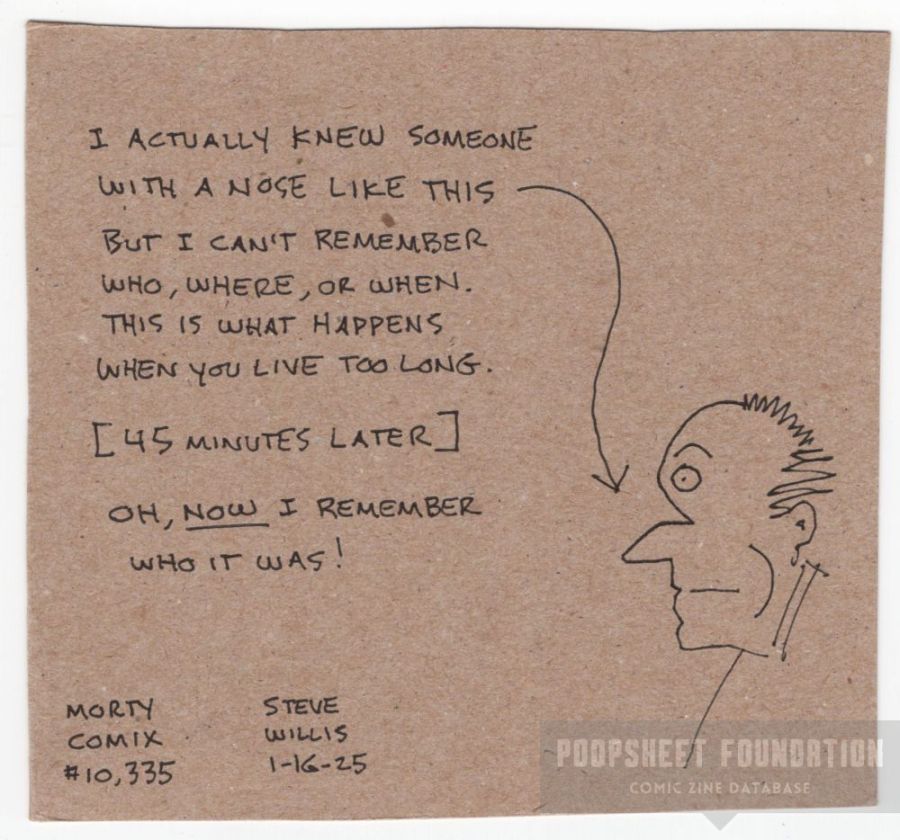 I ACTUALLY KNEW SOMEONE
WITH A NOSE LIKE THIS
BUT I CAN'T REMEMBER
WHO, WHERE, OR WHEN.
THIS IS WHAT HAPPENS
WHEN YOU LIVE TOO LONG.
[45 MINUTES LATER]
OH, NOW I REMEMBER
WHO IT WAS!
MORTY
COMIX
#10,335
STEVE
WILLIS
1-16-25
POOPSHEET FOUNDATION
COMIC ZINE DATABASE